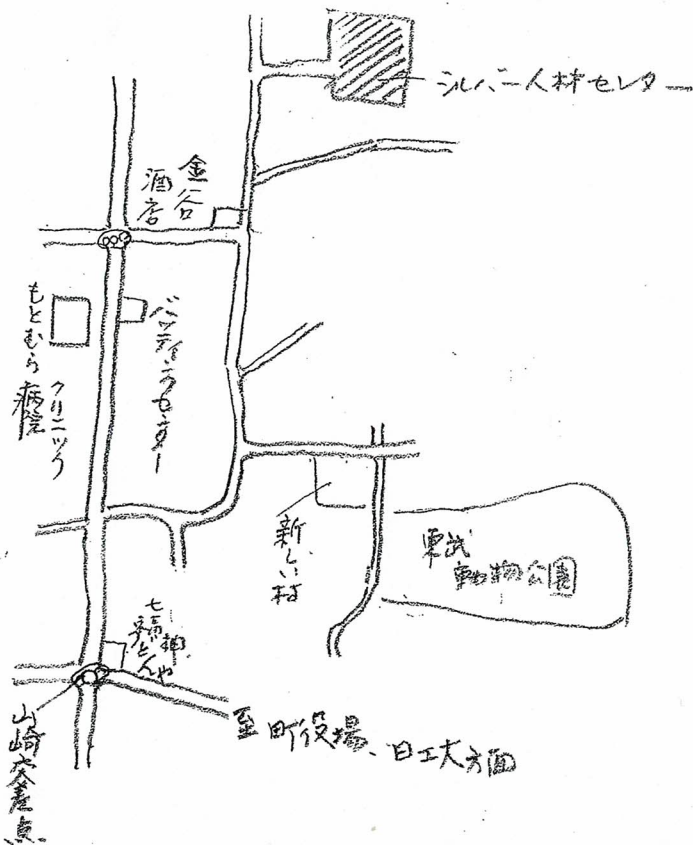 シルバー人材センター
金谷
酒店
もとむら
病院
クリニック
バッティングセンター
新しい村
東武
動物公園
七福神
うどんや
山崎交差点
至町役場、日工大方面